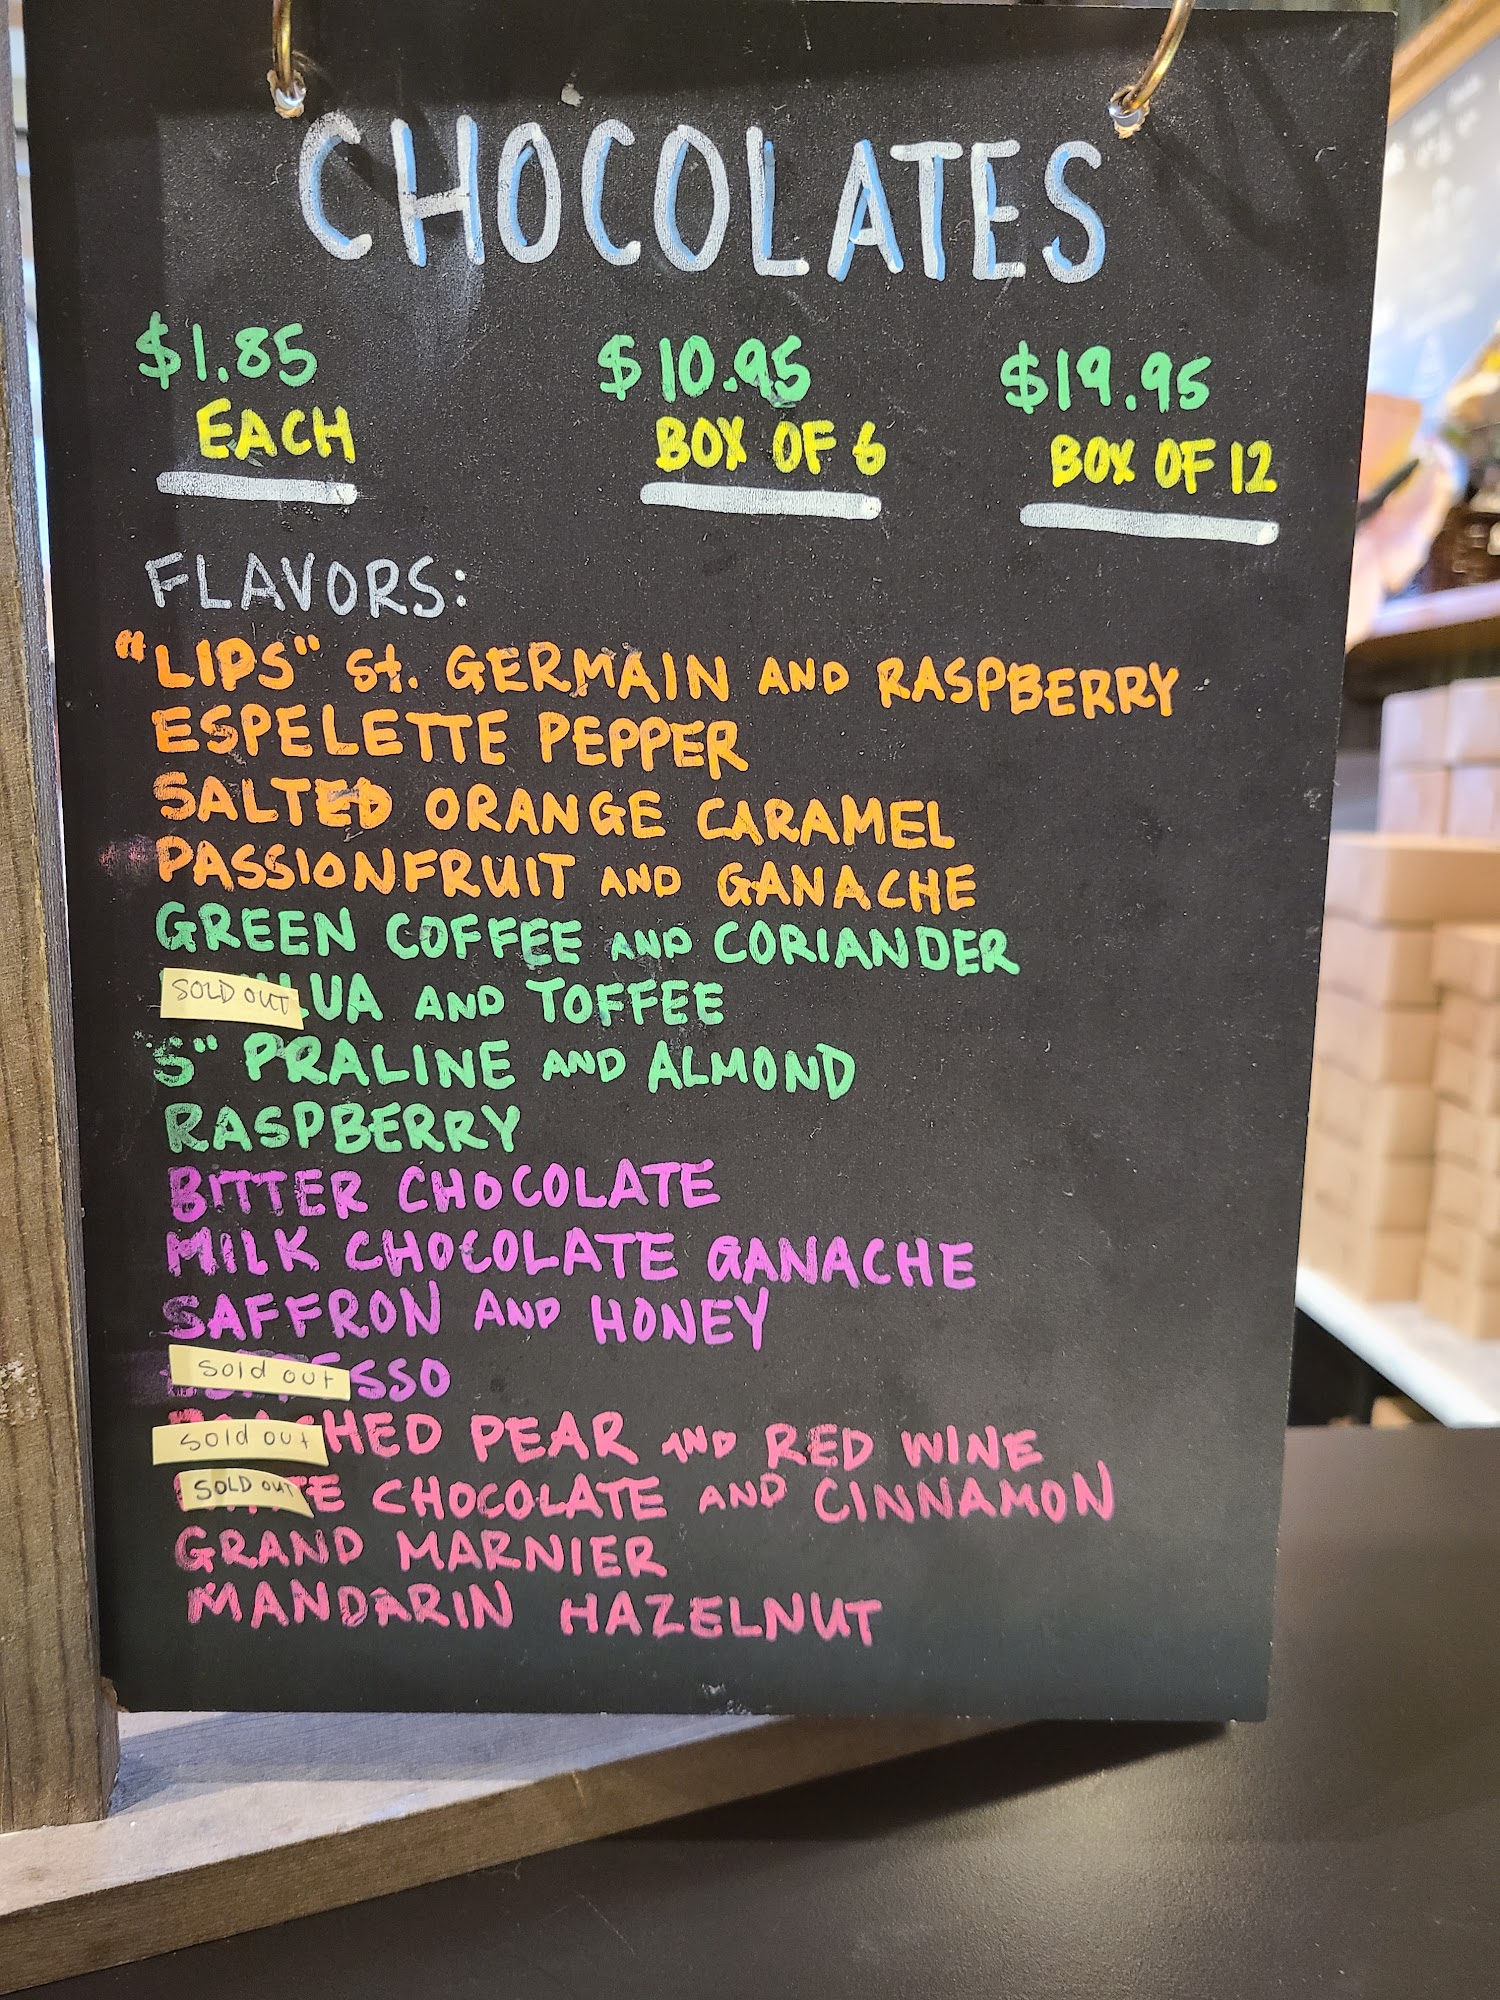 CHOCOLATES
$1.85 $10.95 $19.95
EACH BOX OF 6 BOX OF 12
FLAVORS:
"LIPS" St. GERMAIN AND RASPBERRY
ESPELETTE PEPPER
SALTED ORANGE CARAMEL
PASSIONFRUIT AND GANACHE
GREEN COFFEE AND CORIANDER
SOLD OUT LUA AND TOFFEE
"S" PRALINE AND ALMOND
RASPBERRY
BITTER CHOCOLATE
MILK CHOCOLATE GANACHE
SAFFRON AND HONEY
Sold out SSO
Sold out HED PEAR AND RED WINE
SOLD OUT E CHOCOLATE AND CINNAMON
GRAND MARNIER
MANDARIN HAZELNUT